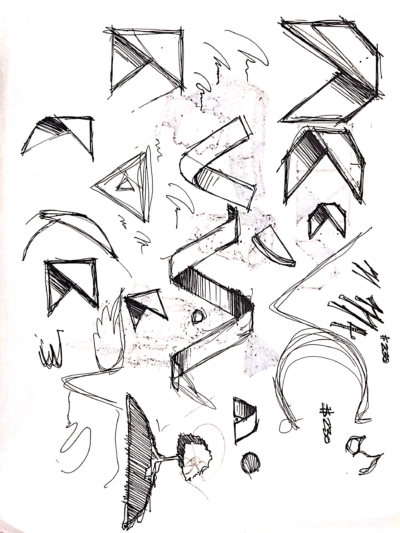 #230
#230